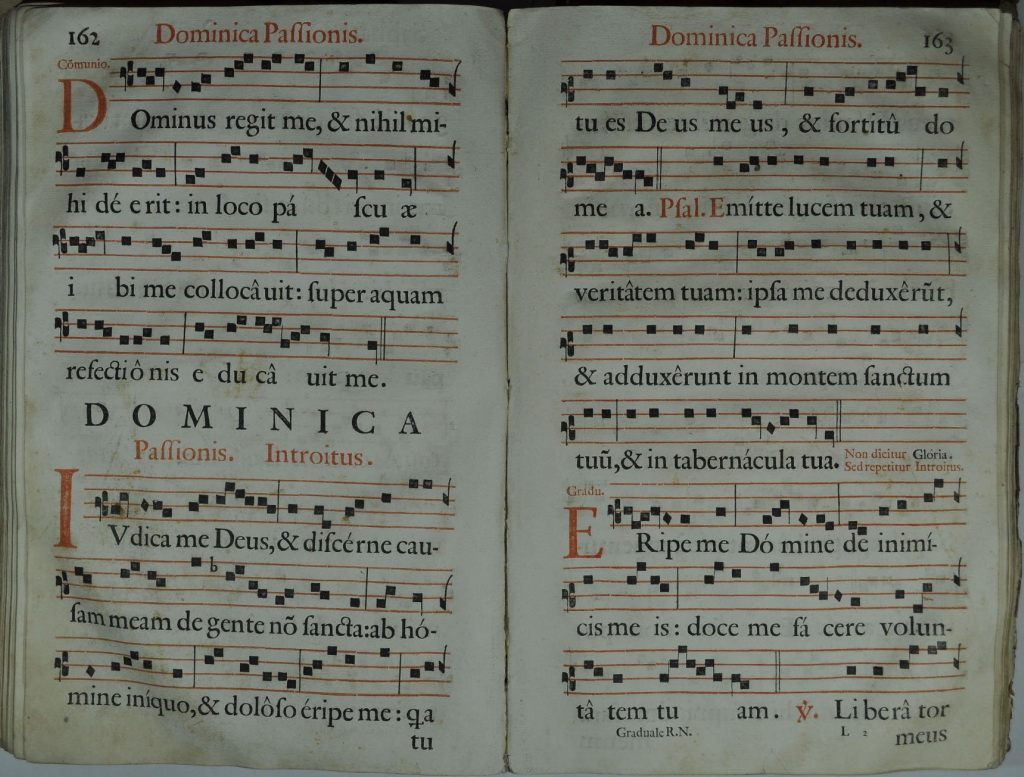 162 Dominica Paſſionis.
Cõmunio.
DOminus regit me, & nihil mi-
hi dé erit: in loco pá ſcu æ
i bi me collocâuit: ſuper aquam
refectiô nis e du câ uit me.
DOMINICA
Paſſionis. Introitus.
IVdica me Deus, & diſcérne cau-
ſam meam de gente nõ ſancta: ab hó-
mine iníquo, & dolôſo éripe me: qa
tu
Dominica Paſſionis. 163
tu es De us me us, & fortitû do
me a. Pſal. Emítte lucem tuam, &
veritâtem tuam: ipſa me deduxêrũt,
& adduxêrunt in montem ſanctum
tuũ, & in tabernácula tua. Non dicitur Glória.
Sed repetitur Introitus.
Gradu.
ERipe me Dó mine de inimí-
cis me is: doce me fá cere volun-
tâ tem tu am. ℣. Li be râ tor
Graduale R.N. L 2 meus